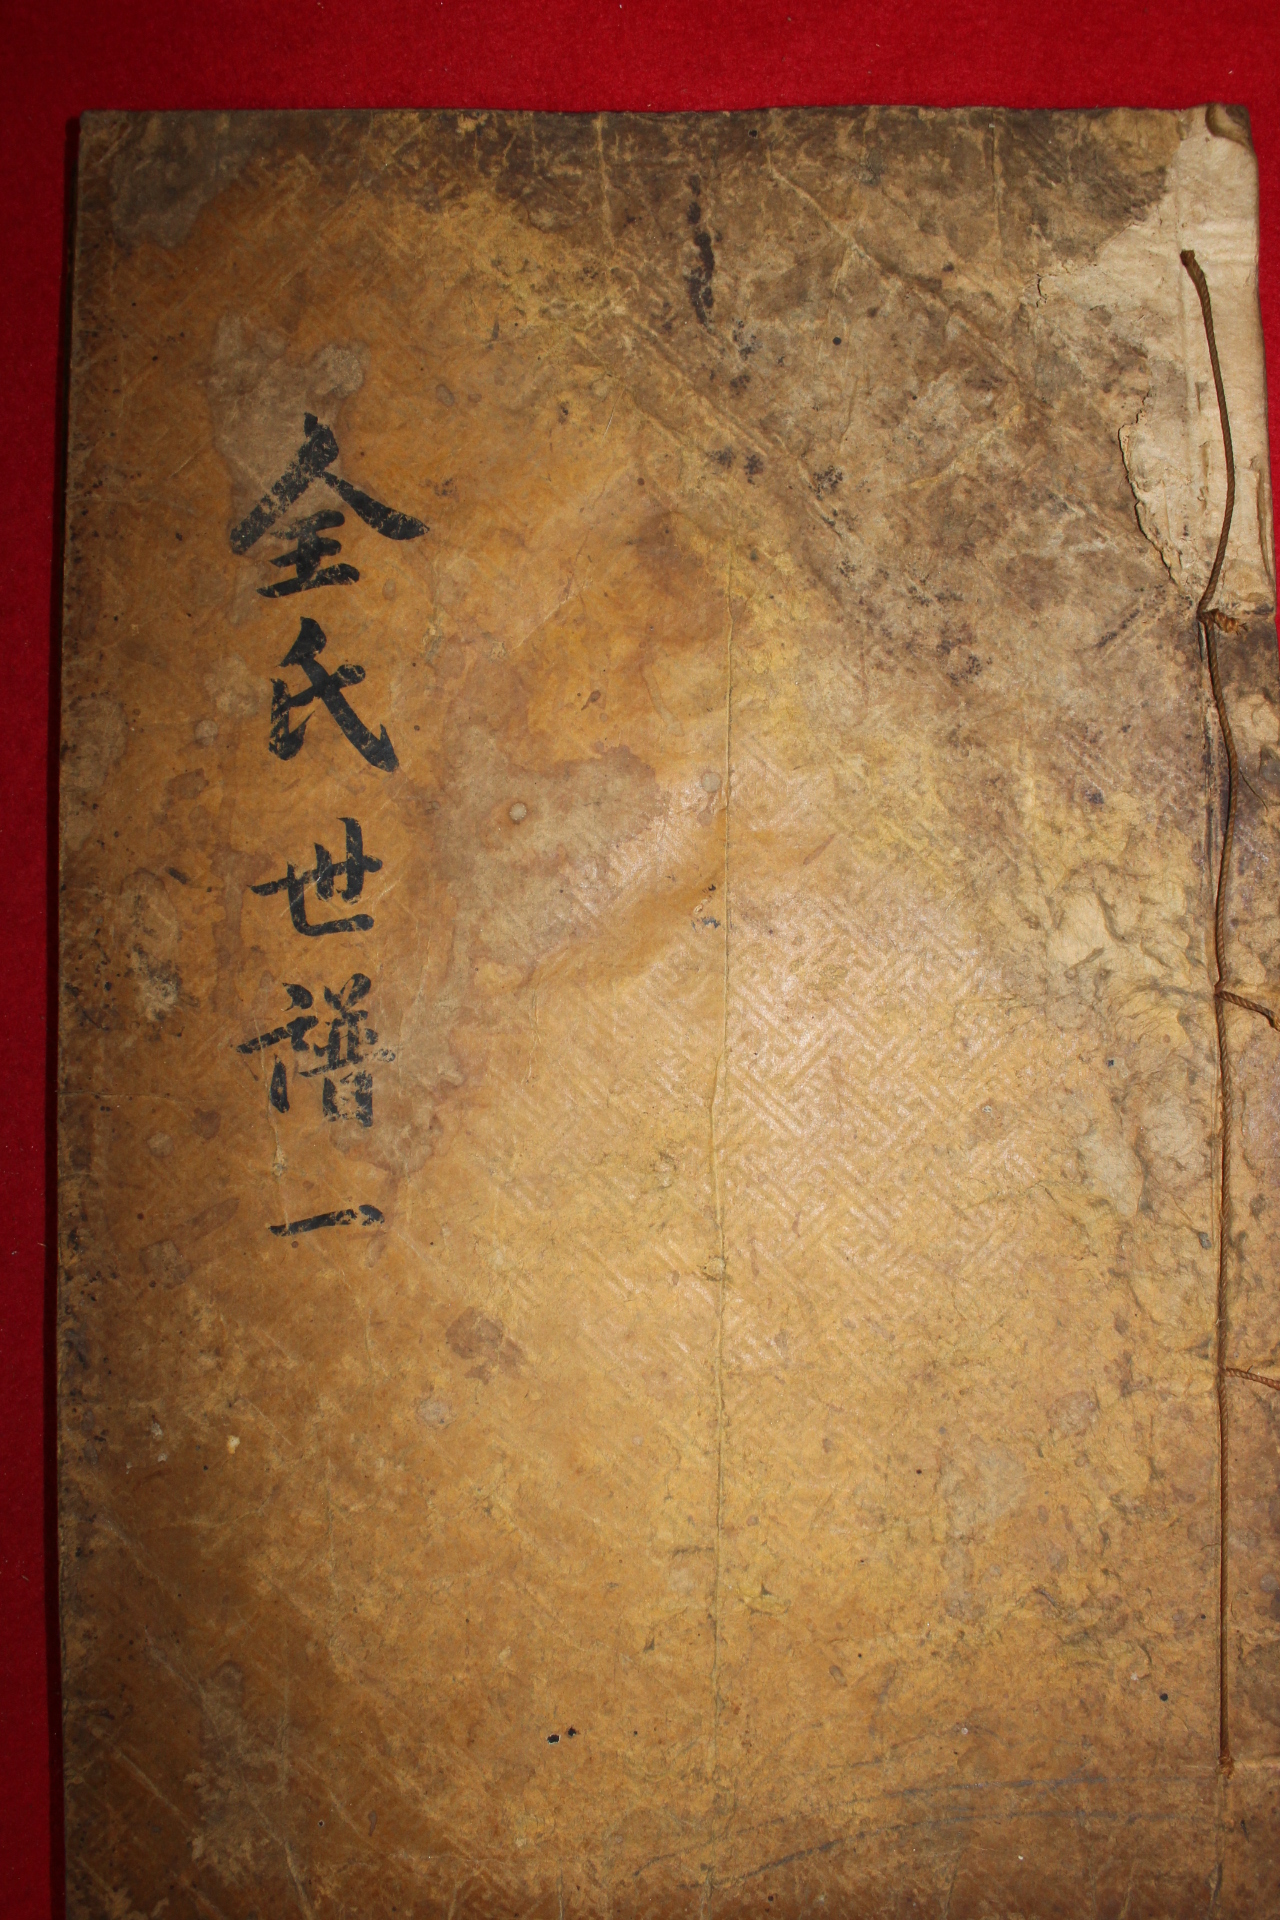 全氏世譜一